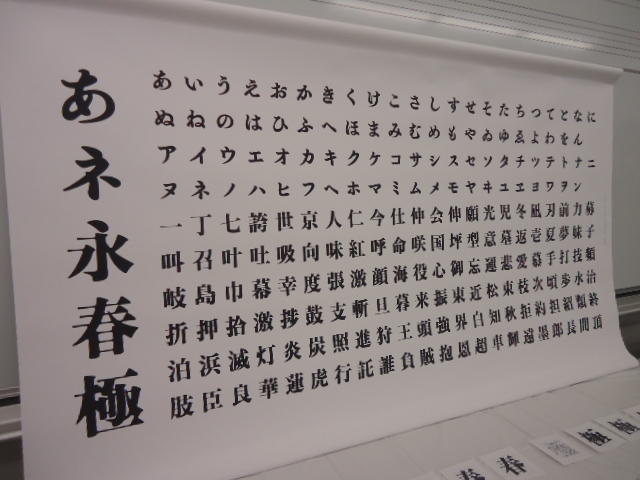 あネ永春極
あいうえおかきくけこさしすせそたちつてとなに
ぬねのはひふへほまみむめもやゐゆゑよわをん
アイウエオカキクケコサシスセソタチツテトナニ
ヌネノハヒフヘホマミムメモヤヰユヱヨワヲン
一丁七誇世京人仁今仕仲会伸願光児冬凪刃前力募
叫召叶吐吸向味紅呼命咲国坪型意墓返壱夏夢妹子
岐島巾幕幸度張激顔海役心御忘遅悲愛慕手打技額
折押拾激捗鼓支斬旦暮来振東近松東枝次頃歩水治
泊浜滅灯炎炭照進狩王頭強界自知秋拒約担紹類終
肢臣良華蓮虎行託誰負賊抱恩超車輝遠墨郎長間頂
春春極極